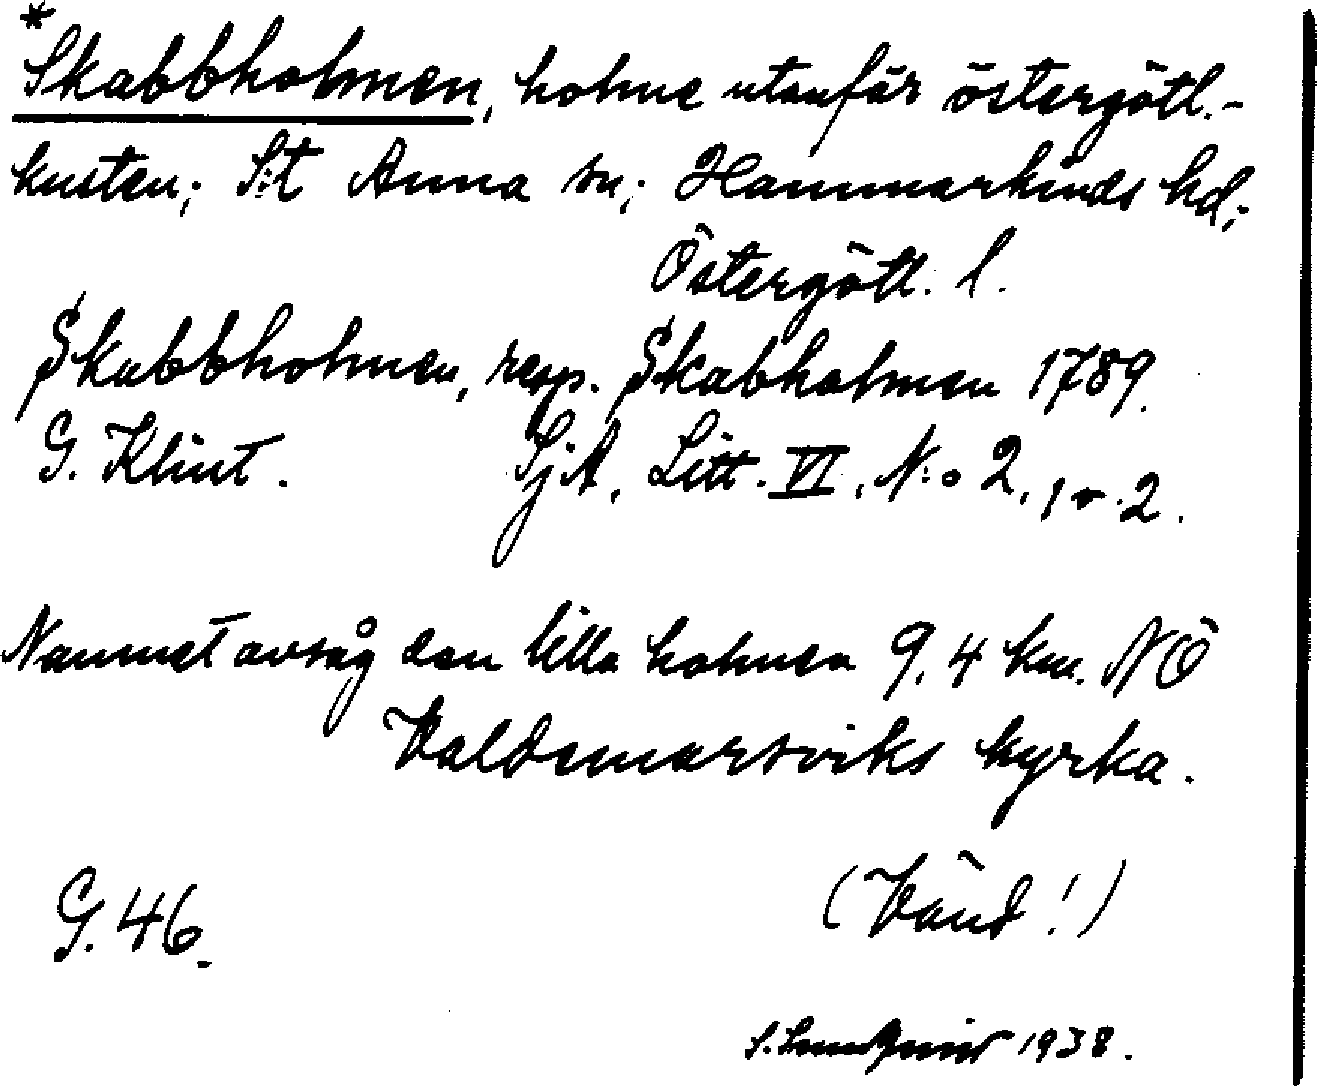 *Skabbholmen, holme utanför östergötl.-
kusten; S:t Anna sn; Hammarkinds hd;
Östergötl. l.
Skabbholmen, resp. Skabholmen 1789.
G. Klint. SjA, Litt. VI, N:o 2, 1 o. 2.
Namnet avsåg den lilla holmen 9,4 km. NÖ
Valdemarsviks kyrka.
(Vänd!)
G. 46.
S. Lundqvist 1938.